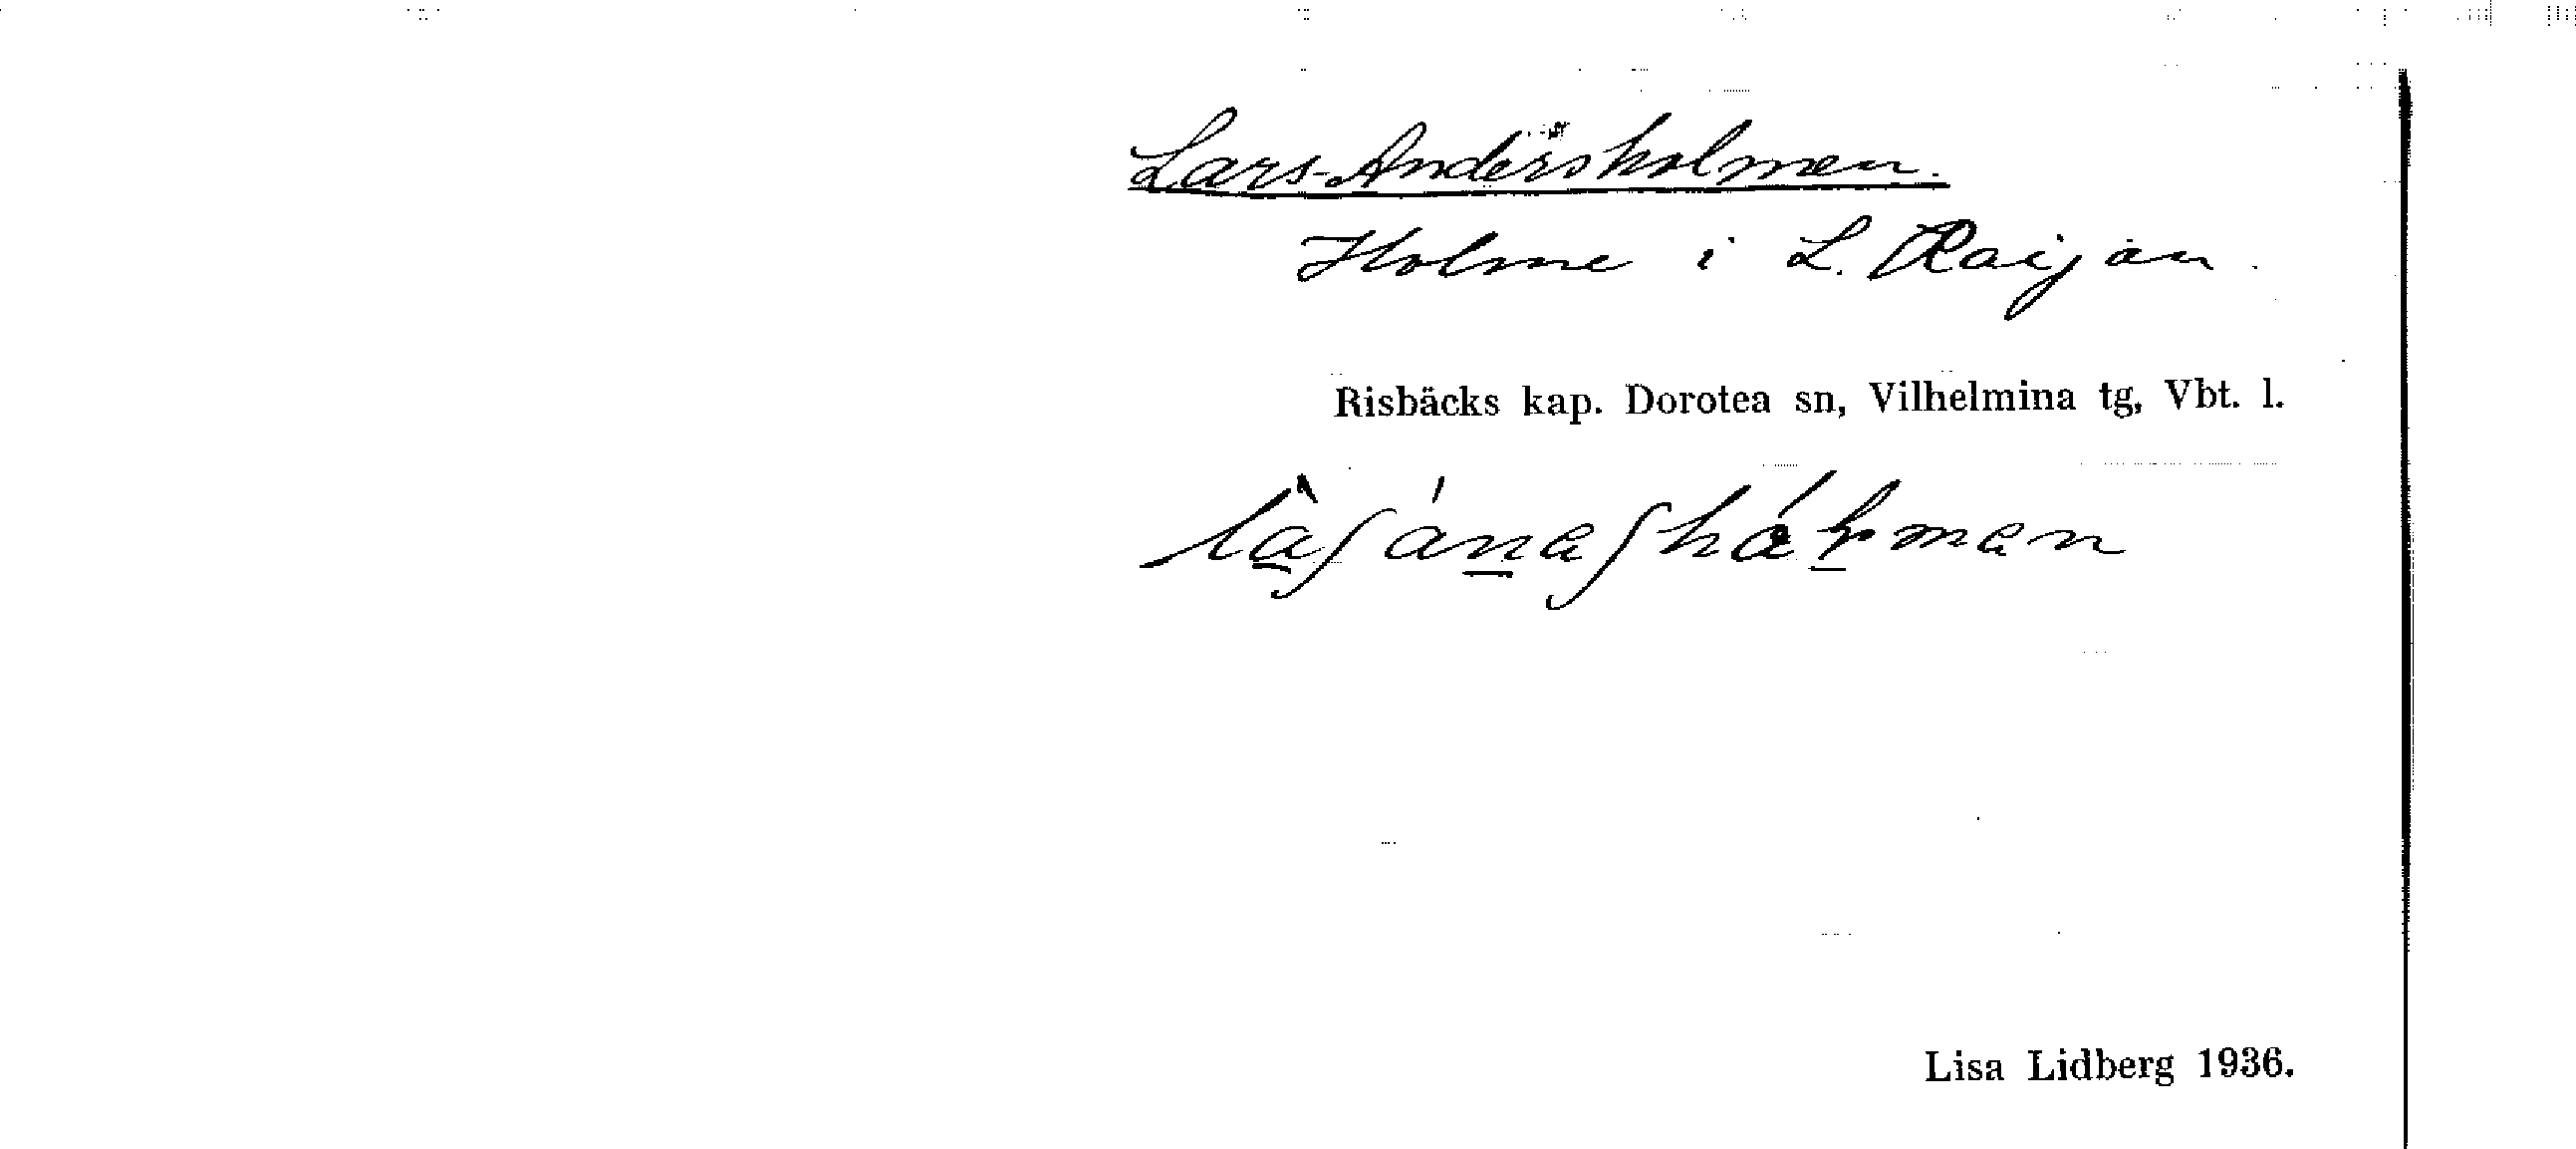 Lars-Andersholmen.
Holme i L. Raijan.
Risbäcks kap. Dorotea sn, Vilhelmina tg, Vbt. l.
Lisa Lidberg 1936.